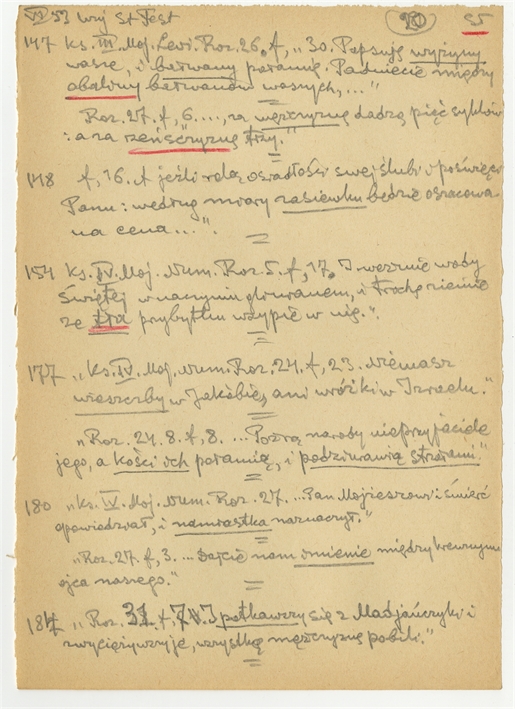 VI 53 Wuj St Test 20 55
147 Ks. III. Moj. Levi. Roz. 26. f, „30. Popsuję wyżyny
wasze, i bałwany połamię. Padniecie między
obaliny bałwanów waszych, ..."
Roz. 27. f, 6. ..., za mężczyznę dadzą pięć syklów
: a za żeńszczyznę trzy."
148 f, 16. A jeśli rolą osiadłości swej ślubi i poświęci
Panu: według miary zasiewku będzie oszacowa-
na cena...".
154 Ks. IV. Moj. Num. Roz. 5. f, 17. I weźmie wody
świętej w naczyniu glinianem, i trochę ziemie
ze tła przybytku wsypie w nię.".
177 „Ks. IV. Moj. Num. Roz. 24. f, 23. Niemasz
wieszczby w Jakóbie, ani wróżki w Izraelu."
„Roz. 24. 8. f, 8. ... Pożrą narody nieprzyjaciele
jego, a kości ich połamią, i podziurawią strzałami."
180 „Ks. IV. Moj. Num. Roz. 27. ... Pan Mojżeszowi śmierć
opowiedział, i namiastka naznaczył."
„Roz. 27. f, 3. ... Dajcie nam imienie między krewnymi
ojca naszego."
184 „Roz. 31. f, 7. I potkawszy się z Madjańczyki i
zwyciężywszy je, wszystkę mężczyznę pobili."